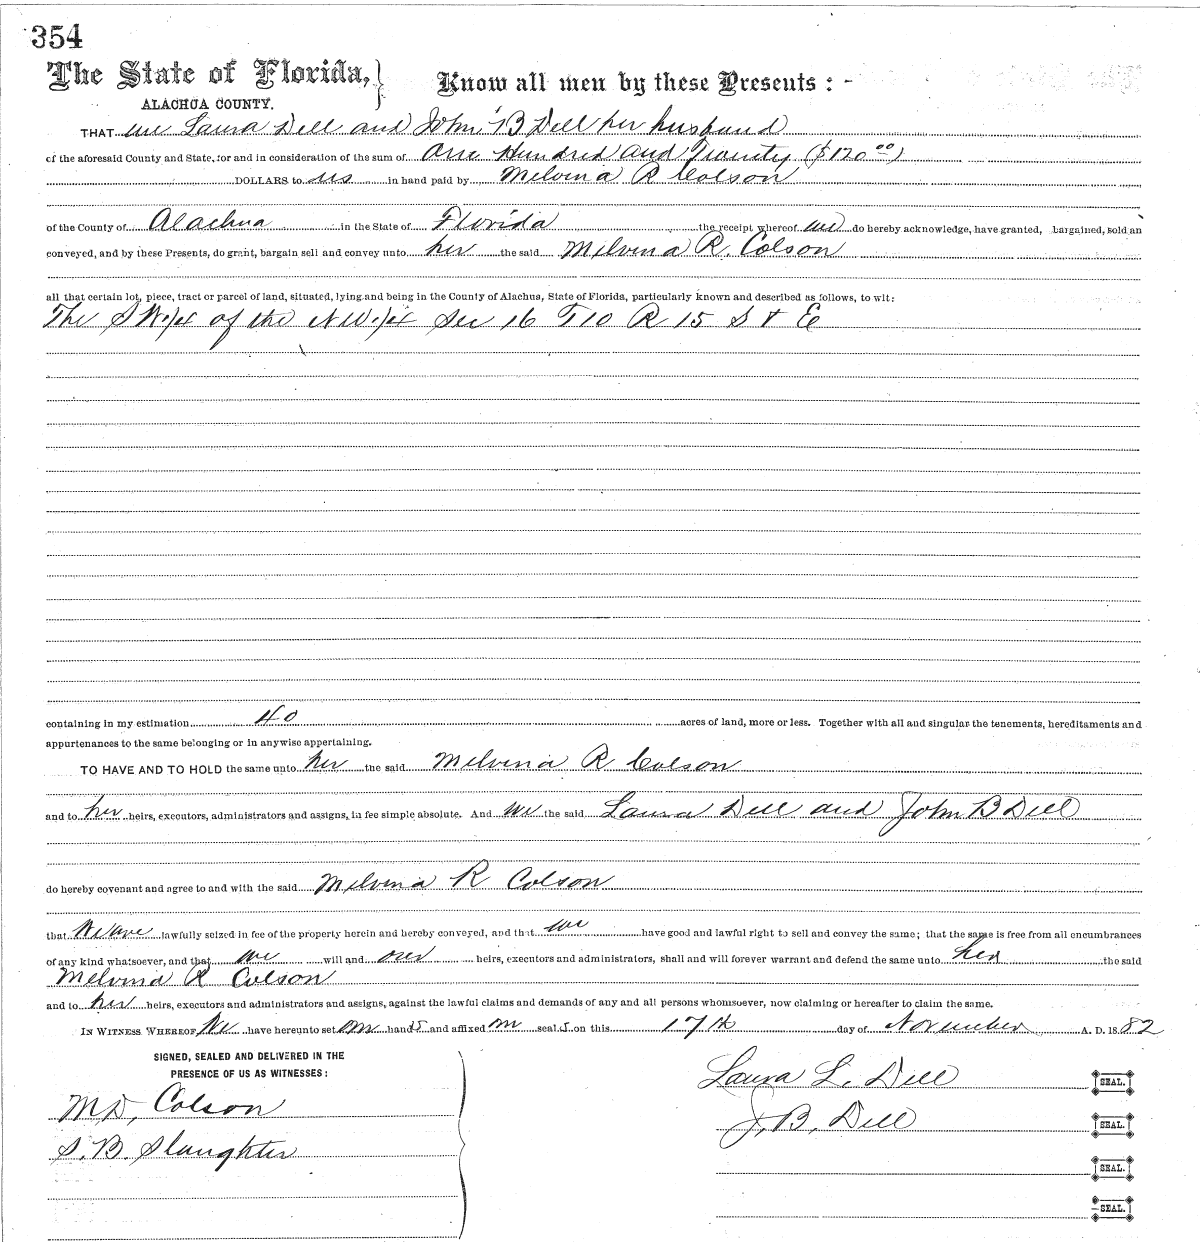 354
The State of Florida,} Know all men by these Presents : -
ALACHUA COUNTY.
THAT we Laura Dell and John B Dell her husband
of the aforesaid County and State, for and in consideration of the sum of One Hundred and Twenty ($120 00)
DOLLARS to us in hand paid by Melvina R Colson
of the County of Alachua in the State of Florida the receipt whereof we do hereby acknowledge, have granted, bargained, sold an
conveyed, and by these Presents, do grant, bargain sell and convey unto her the said Melvina R. Colson
all that certain lot, piece, tract or parcel of land, situated, lying and being in the County of Alachua, State of Florida, particularly known and described as follows, to wit:
The SW 1/4 of the NW 1/4 Sec 16 T10 R 15 S & E
containing in my estimation 40 acres of land, more or less. Together with all and singular the tenements, hereditaments and
appurtenances to the same belonging or in anywise appertaining.
TO HAVE AND TO HOLD the same unto her the said Melvina R Colson
and to her heirs, executors, administrators and assigns, in fee simple absolute. And we the said Laura Dell and John B Dell
do hereby covenant and agree to and with the said Melvina R Colson
that We are lawfully seized in fee of the property herein and hereby conveyed, and that we have good and lawful right to sell and convey the same; that the same is free from all encumbrances
of any kind whatsoever, and that we will and our heirs, executors and administrators, shall and will forever warrant and defend the same unto her the said
Melvina R Colson
and to her heirs, executors and administrators and assigns, against the lawful claims and demands of any and all persons whomsoever, now claiming or hereafter to claim the same.
IN WITNESS WHEREOF We have hereunto set our hands and affixed our seals on this 17th day of November A. D. 1882
SIGNED, SEALED AND DELIVERED IN THE
PRESENCE OF US AS WITNESSES :
Laura L. Dell SEAL.
M D, Colson
J. B. Dell SEAL.
S. B. Slaughter
SEAL.
SEAL.